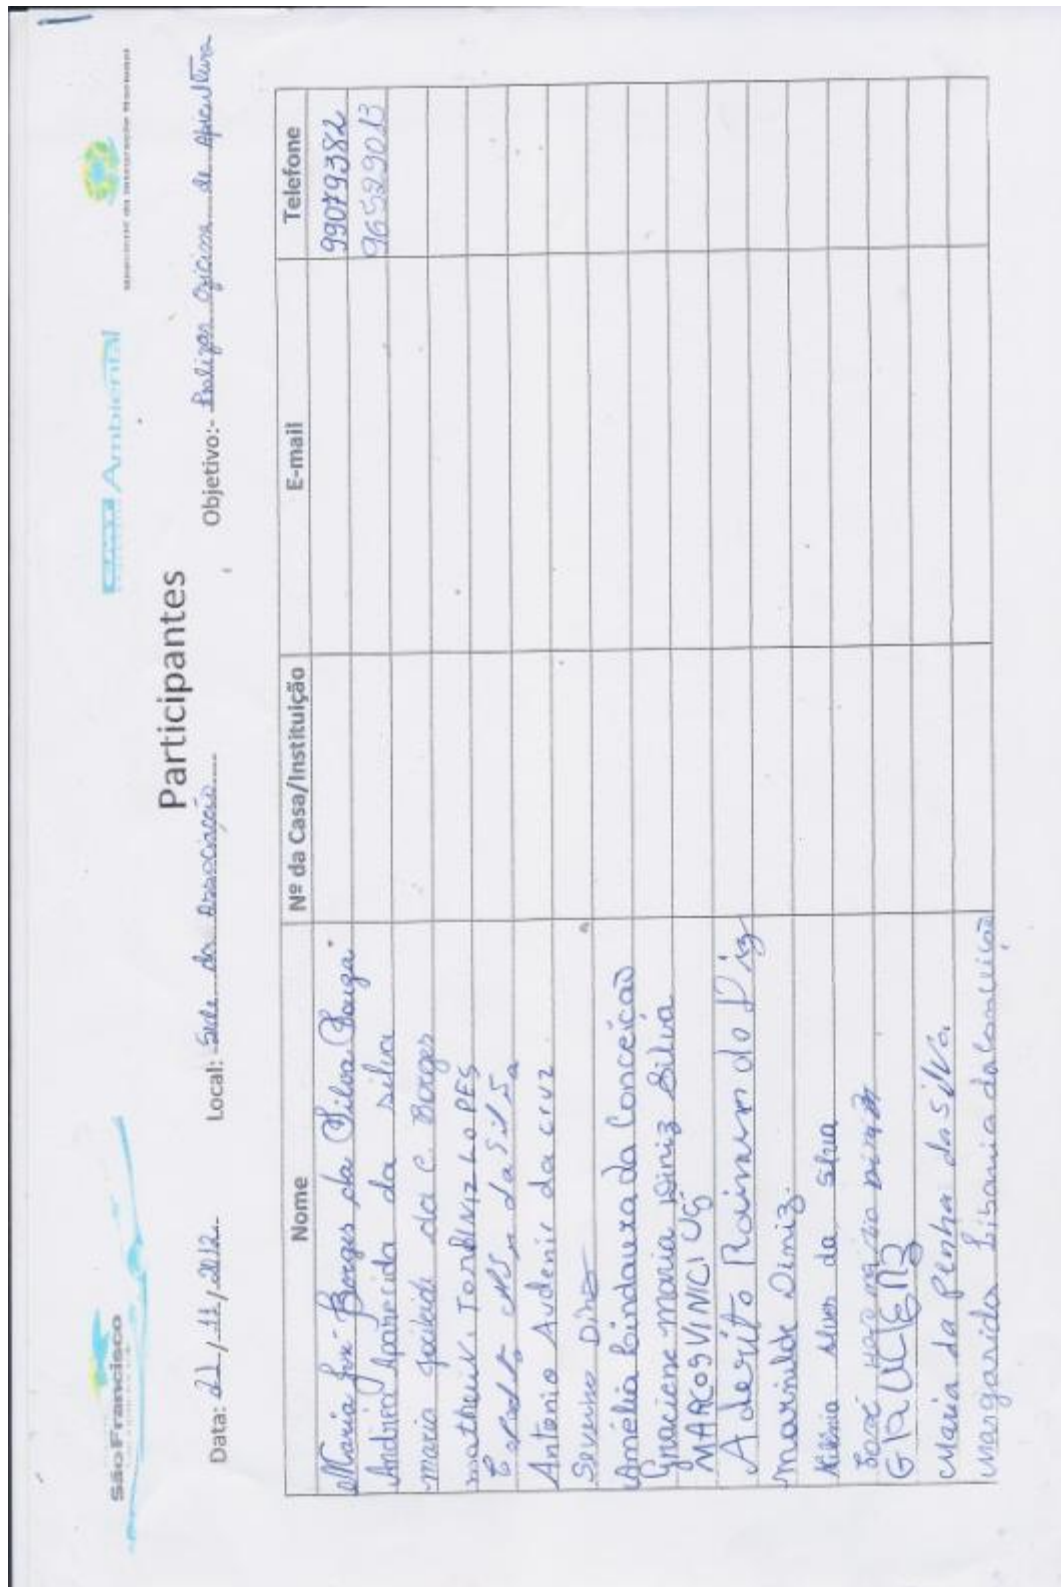 São Francisco
CMT Ambiental
Participantes
Data: 22/11/2012. Local: Sede da Associação Objetivo:- Realizar oficina de Apicultura
Nome Nº da Casa/Instituição E-mail Telefone
Maria José Borges da Silva Souza 99079382
Andréia Aparecida da silva 96529013
maria da C. Borges
LOPES
da Silva
Antonio Audenis da cruz
Severino Diniz
Amélia Lindaura da Conceição
Graciene maria Diniz Silva
MARCOS VINICIUS
Aderito Raimundo Diniz
marinalde Diniz.
Alves da Silva
José
Maria da Penha da Silva.
Margarida Libania da Conceição